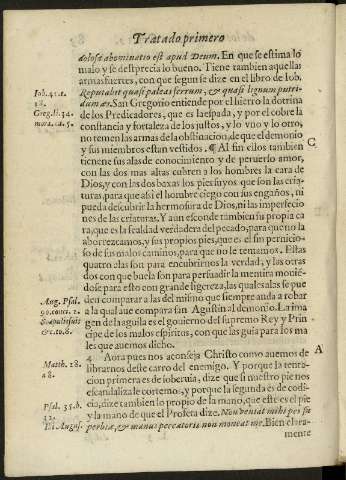 Tratado primero
dolosa abominatio est apud Deum. En que se estima lo
malo y se desprecia lo bueno. Tiene tambien aquellas
armas fuertes, con que segun se dize en el libro de Iob.
Iob. 41. t.
18.
Reputabit quasi paleas ferrum, & quasi lignum putri-
dum æs. San Gregorio entiende por el hierro la dotrina
Greg. li. 34.
mora. ca. 5.
de los Predicadores, que es la espada, y por el cobre la
constancia y fortaleza de los justos, y lo vno y lo otro
no temen las armas de la obstinacion, de que el demonio
y sus miembros estan vestidos. ¶ Al fin ellos tambien
C
tienene sus alas de conocimiento y de peruerso amor,
con las dos mas altas cubren a los hombres la cara de
Dios, y con las dos baxas los pies suyos que son las cria-
turas, para que assi el hombre ciego con sus engaños, ni
pueda descubrir la hermosura de Dios, ni las imperfecio
nes de las criaturas. Y aun esconde tambien su propia ca
ra, que es la fealdad verdadera del pecado, para que no la
aborrezcamos, y sus propios pies, que es el fin pernicio-
so de sus malos caminos, para que no le temamos. Estas
quatro alas son para encubrirnos la verdad, y las otras
dos con que buela son para persuadir la mentira mouié-
dose para esto con grande ligereza, las quales alas se pue
Aug. Psal.
90. conc. 2.
Scapulis suis
& c. to. 8.
den comparar a las del milano que siempre anda a robar
a la qual aue compara san Agustin al demonio. La ima
gen de la aguila es el gouierno del supremo Rey y Prin
cipe de los malos espiritus, con que las guia para los ma
les que auemos dicho.
4 Aora pues nos aconseja Christo como auemos de
A
Matth. 18.
a 8.
librarnos deste carro del enemigo. Y porque la tenta-
cion primera es de soberuia, dize que si nuestro pie nos
escandaliza le cortemos: y porque la segunda es de codi-
cia, dize tambien lo propio de la mano, que este es el pie
Psal. 35. b.
12.
y la mano de que el Profeta dize. Non veniat mihi pes su
Di August.
perbiæ, & manus peccatoris non moueat me. Bien clara-
mente